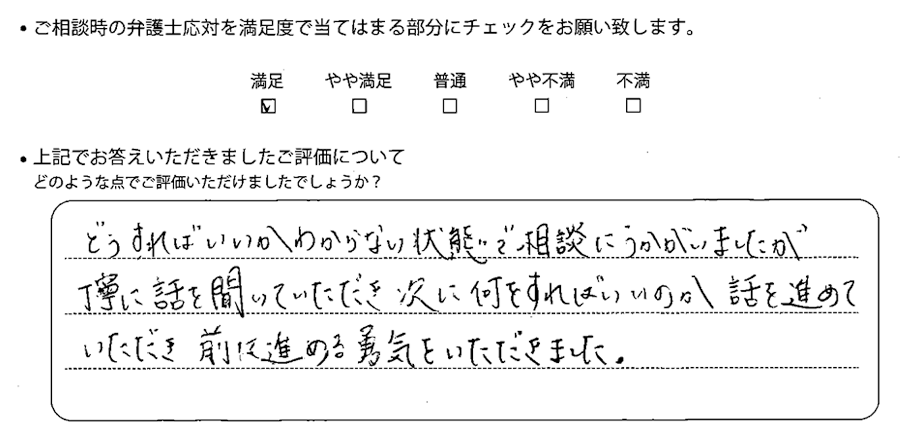 • ご相談時の弁護士応対を満足度で当てはまる部分にチェックをお願い致します。
満足 やや満足 普通 やや不満 不満
☑ □ □ □ □
• 上記でお答えいただきましたご評価について
どのような点でご評価いただけましたでしょうか？
どうすればいいかわからない状態で相談にうかがいましたが
丁寧に話を聞いていただき次に何をすればいいのか話を進めて
いただき前に進める勇気をいただきました。